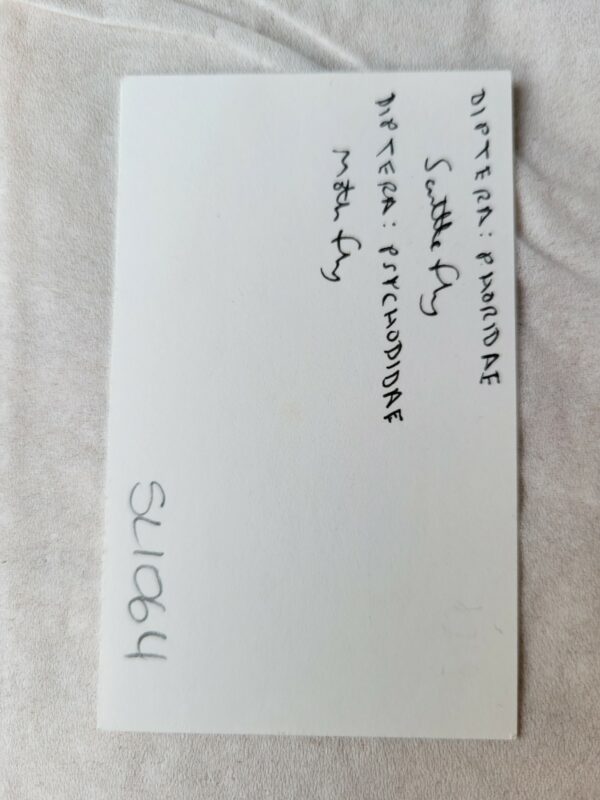 DIPTERA: PHORIDAE
Scuttle fly
DIPTERA: PSYCHODIDAE
Moth fly
SL1064